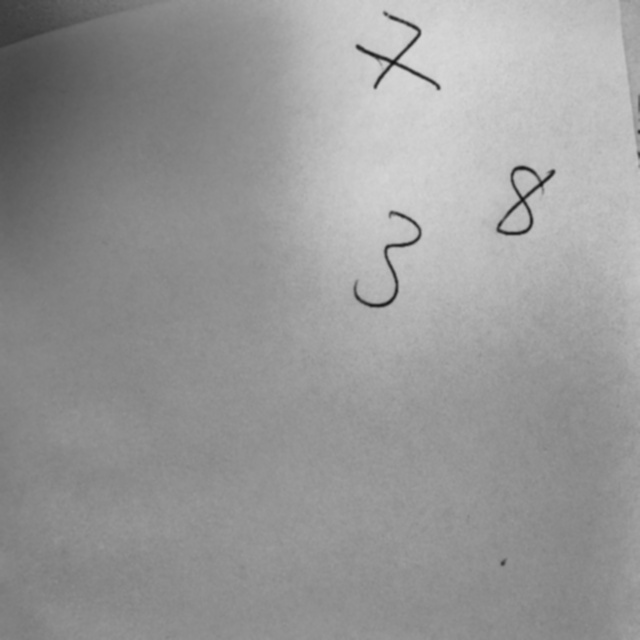 7
8
3